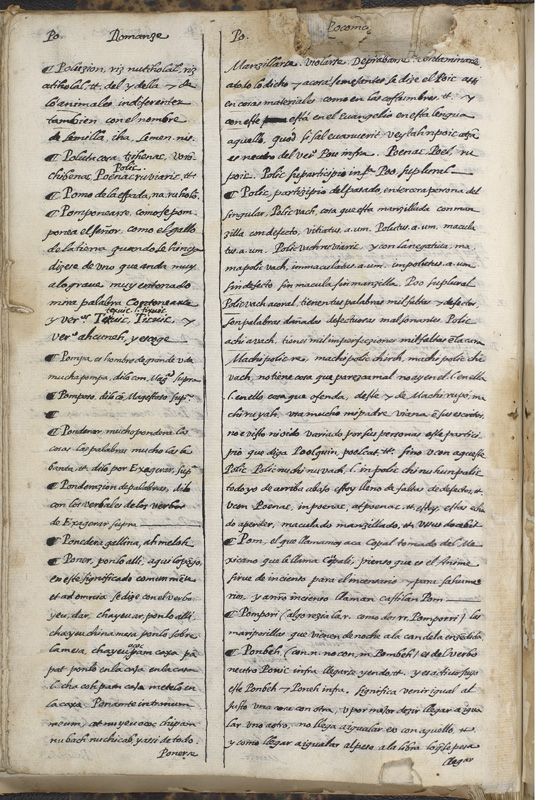 Po. Romanze
¶ Poluzion, riz nutiholal, riz
atiholal, &. del y della y de
los animales indeferenter
tambien con el nombre
de semilla, iha, semen nis.
¶ Polutricora
chihenac, Poenac, ru ivaric, &
Polic.
¶ Pomo de la espada, na, ru holo.
¶ Pomponearse, como se pom
ponea el señor, como el gallo
de la tierra quando se hincha
dizese de uno que anda muy
a lo grave, muy entonado
mira palabra Contonearse
y ver
ver. ah cuneh, y escoge
¶ Pompa, es hombre de grande v de
mucha pompa, dilo con Mag. supra
¶ Pomposo, dilo cõ Magestoso sup.
¶
¶ Ponderar, mucho pondera las
cosas, las palabras mucho las le
banta, &. dilo por Exagerar, sup.
¶ Ponderazion de palabras, dilo
con los verbales de los verbos
de Exagerar supra
¶ Ponedera gallina, ah moloh
¶ Poner, ponlo alli, aqui lo puso,
en este significado comun mira
et ad omnia se dize con el verbo
yeu, dar, cha yeu ar, ponlo alli
cha yeu chi na mesa ponlo sobre
la mesa, cha yeu pam caxa pa
pat ponlo en la caxa en la casa
l. cha coh pam caxa, metelo en
la caxa. Ponerse in bonum
nu bach nu chicab, y assi de todo.
Ponerse
Po. Pocomg
Manzillarse, violarse, Depravarse, contaminarse
a todo lo dicho y a cosas semejantes se dize el Poic assi
en cosas materiales como en las costumbres, &. y
con este está en el Evangelio en esta lengua
aquello, quod si sal evanuerit
es neutro del ver. Pou infra. Poenac, Poel, ru
poic. Polic su participio inf. Poo su plural
¶ Polic, partizipio del pasado, en terzera persona del
singular. Polic vach, cosa que esta manzillada con man
zilla con defecto, vitiatus. a. um. Polutus. a. um. macula
tus. a. um. Polic vach ru ivaric, y con la negativa, ma
ma polic vach, immaculatus. a. um. impolutus. a. um.
sin defecto sin macula sin manzilla. Poo su plural
Polic vach acoral, tienen tus palabras mil faltas y defectos,
son palabras dañadas defectuosas mal sonantes. Polic
achi a vach, tienes mil imperfecciones mil faltas ẽ la cara
Machi polic re, machi polic chirih, machi polic chi
vach, no tiene cosa que parezca mal no ay en el l. en ella
l. en ello cosa que ofenda, de este y de Machi rupo, ma
no e visto ni oido variado por sus personas este partici
pio que diga Poolquin, poolcat, &. sino van aqueste
Polic. Polic nu chi nu vach, l. in polic chi nu hunpolic
todo yo de arriba abajo estoy lleno de faltas de defectos, &
van Poenac, in poenac, at poenac, &. estoy, estas echa
do a perder, maculado manzillado, &.
¶ Pom, el que llamamos aca Copal tomado del Me
xicano que le llama Copali, pienso que es el Anime
sirve de incienso para el incensario y para sahume
rios, y a nro incienso llaman castilan Pom
¶ Pompori (algo rezia la r. como dos rr. Pomporri) las
mariposillas que vienen de noche a la candela enzendida
¶ Ponbeh, (con n. no con m. Pombeh) es del verbo
neutro Ponic infra llegarse yendo, &. y es activo suyo
este Ponbeh y Poneh infra, significa venir igual al
justo una cosa con otra, v por mejor dezir llegar a igua
lar uno a otro, no llega a igualar eso con aquello, &
y como llegar a igualar al peso, a la libra
llegar